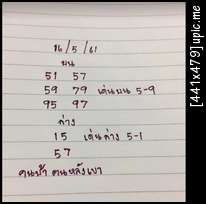 16/5/61
บน
51 57
59 79 เด่นบน 5-9
95 97
ล่าง
15 เด่นล่าง 5-1
57
คนบ้า ฅนหลังเขา
[441x479] upic.me